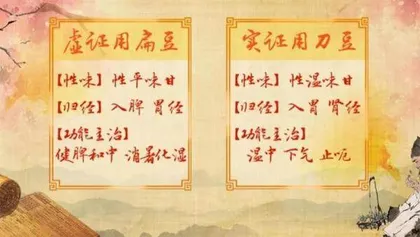 虚证用扁豆
【性味】性平味甘
【归经】入脾 胃经
【功能主治】
健脾和中 消暑化湿
实证用刀豆
【性味】性温味甘
【归经】入胃 肾经
【功能主治】
温中 下气 止呃